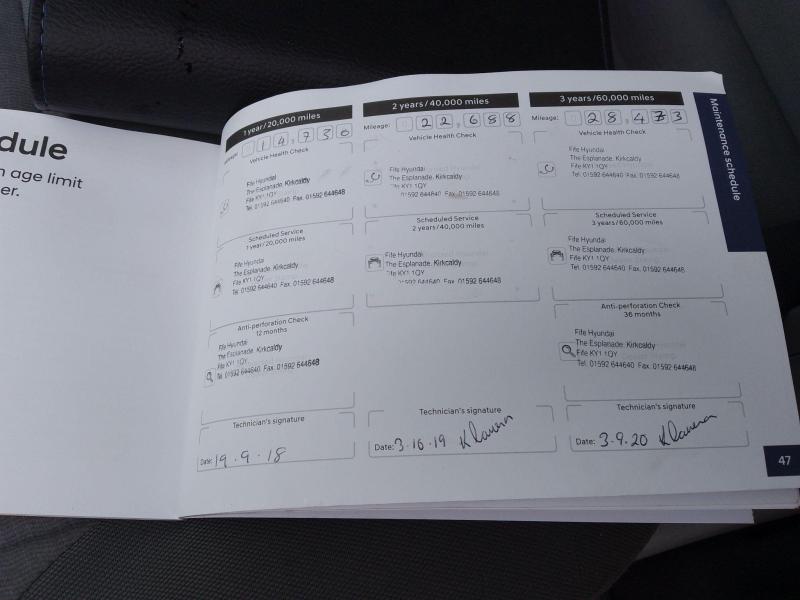 dule
n age limit
er.
1 year/20,000 miles
Mileage: 014,730
Vehicle Health Check
Fife Hyundai
The Esplanade, Kirkcaldy
Fife KY1 1QY
Tel. 01592 644640 Fax. 01592 644648
Scheduled Service
1 year/20,000 miles
Fife Hyundai
The Esplanade, Kirkcaldy
Fife KY1 1QY
Tel. 01592 644640 Fax. 01592 644648
Anti-perforation Check
12 months
Fife Hyundai
The Esplanade, Kirkcaldy
Fife KY1 1QY
Tel. 01592 644640 Fax. 01592 644648
Technician's signature
Date: 19.9.18
2 years/40,000 miles
Mileage: 022,688
Vehicle Health Check
Fife Hyundai
The Esplanade, Kirkcaldy
Fife KY1 1QY
01592 644640 Fax. 01592 644648
Scheduled Service
2 years/40,000 miles
Fife Hyundai
The Esplanade, Kirkcaldy
Fife KY1 1QY
01592 644640 Fax. 01592 644648
Technician's signature
Date: 3.10.19
3 years/60,000 miles
Mileage: 028,433
Vehicle Health Check
Fife Hyundai
The Esplanade, Kirkcaldy
Fife KY1 1QY
Tel. 01592 644640 Fax. 01592 644648
Scheduled Service
3 years/60,000 miles
Fife Hyundai
The Esplanade, Kirkcaldy
Fife KY1 1QY
Tel. 01592 644640 Fax. 01592 644648
Anti-perforation Check
36 months
Fife Hyundai
The Esplanade, Kirkcaldy
Fife KY1 1QY
Tel. 01592 644640 Fax. 01592 644648
Technician's signature
Date: 3.9.20
Maintenance schedule
47